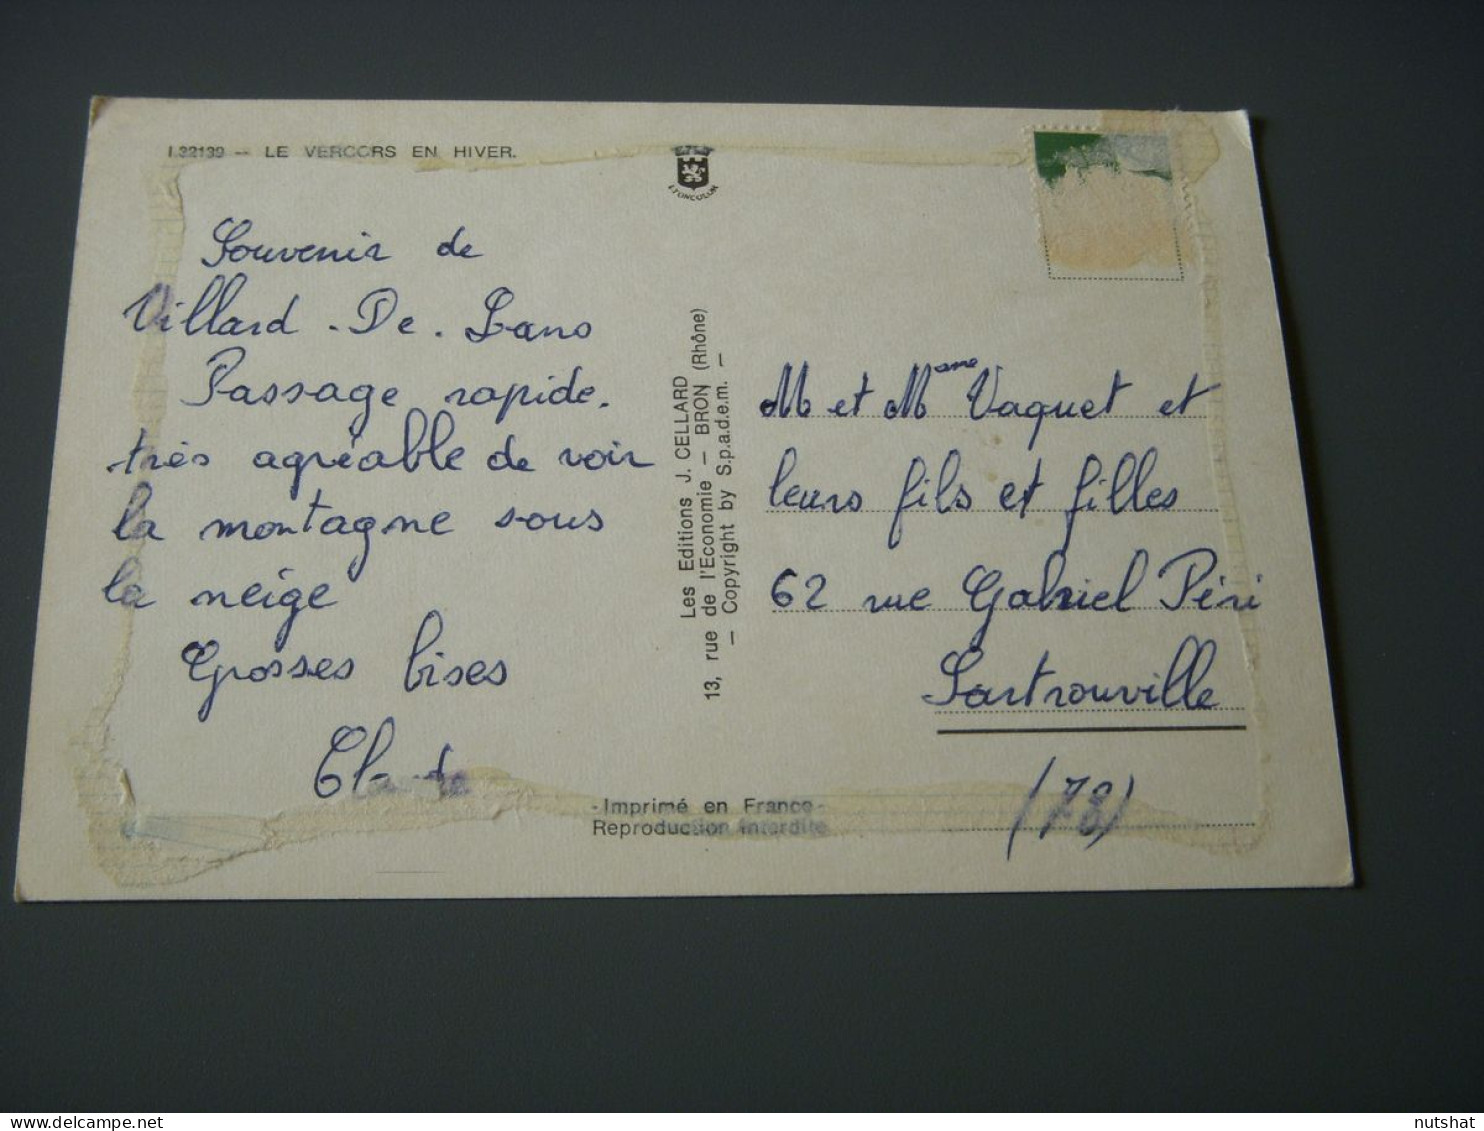 I.32139 -- LE VERCORS EN HIVER.
Souvenir de
Villard-De-Lans
Passage rapide.
très agréable de voir
la montagne sous
la neige
Grosses bises
Claude
Les Editions J. CELLARD
13, rue de l'Economie - BRON (Rhône)
- Copyright by S.p.a.d.e.m. -
M et Mme Vaquet et
leurs fils et filles
62 rue Gabriel Péri
Sartrouville
(78)
-Imprimé en France-
Reproduction interdite
nutshat